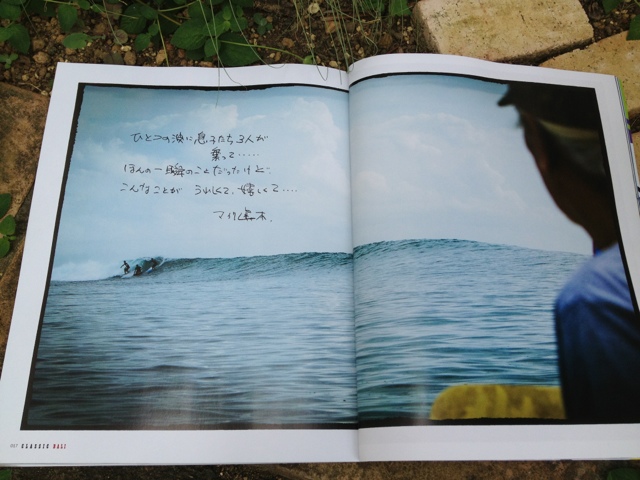 ひとつの波に息子たち3人が
乗って.....
ほんの一瞬のことだったけど、
こんなことが うれしくて、嬉しくて....
マイク
CLASSIC BALI